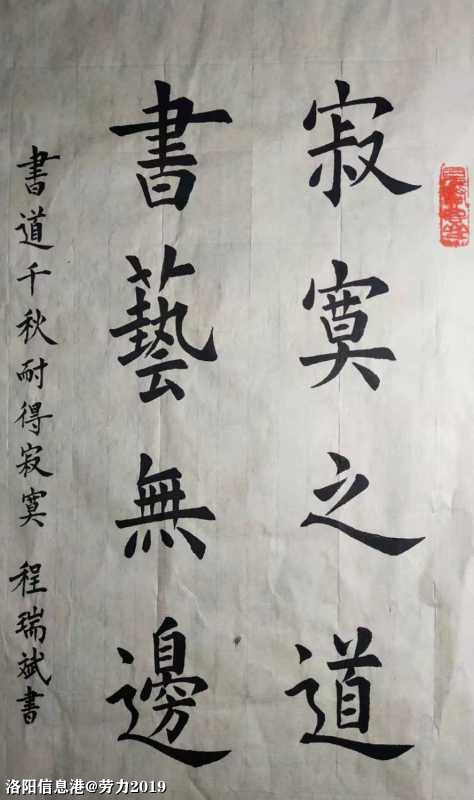 寂寞之道
書藝無邊
書道千秋耐得寂寞 程瑞斌書
洛阳信息港@劳力2019